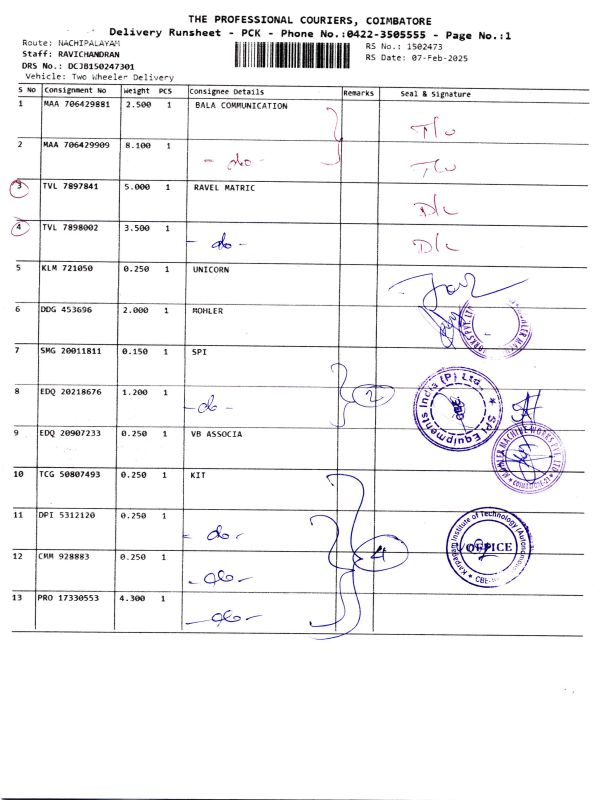 THE PROFESSIONAL COURIERS, COIMBATORE
Delivery Runsheet - PCK - Phone No.:0422-3505555 - Page No.:1
Route: NACHIPALAYAM
RS No.: 1502473
Staff: RAVICHANDRAN
RS Date: 07-Feb-2025
DRS No.: DCJB150247301
Vehicle: Two Wheeler Delivery
S No Consignment No Weight PCS Consignee Details Remarks Seal & Signature
1 MAA 706429881 2.500 1 BALA COMMUNICATION
2 MAA 706429909 8.100 1 - do -
3 TVL 7897841 5.000 1 RAVEL MATRIC D/L
4 TVL 7898002 3.500 1 - do - D/L
5 KLM 721050 0.250 1 UNICORN
6 DDG 453696 2.000 1 MOHLER
7 SMG 20011811 0.150 1 SPI
8 EDQ 20218676 1.200 1 - do - 2
SPI Equipments India (P) Ltd.
9 EDQ 20907233 0.250 1 VB ASSOCIA
MACHINE WORKS PVT. LTD
10 TCG 50807493 0.250 1 KIT
11 DPI 5312120 0.250 1 - do -
Karpagam Institute of Technology
OFFICE
12 CMM 928883 0.250 1 - do - 4
13 PRO 17330553 4.300 1 - do -